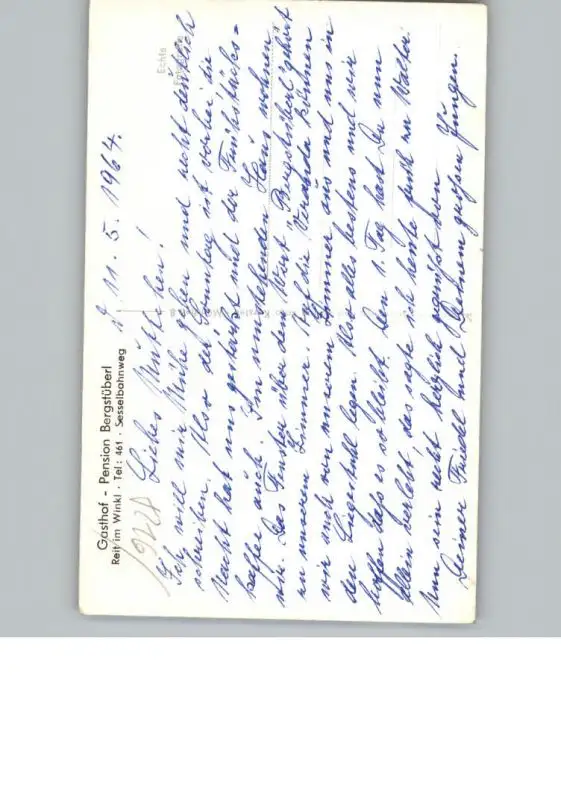 Gasthof - Pension Bergstüberl
Reit im Winkl · Tel: 461 · Sesselbahnweg
d. 11. 5. 1964.
Liebes Muttchen!
Ich will mir Mühe geben und recht deutlich
schreiben. Also der Sonntag ist vorbei die
Nacht hat uns gut und der Frühstücks-
kaffee auch. Im umstehenden Haus wohnen
wir. Das Fenster über dem Wort "Bergstüberl" gehört
zu unserem Zimmer. Auf die Veranda können
wir auch von unserem Zimmer aus und uns in
den Liegestuhl legen. Also alles bestens und wir
hoffen daß es so bleibt. Den 1. Tag hast Du nun
allein verlebt, das sagte ich heute früh zu Walter.
Nun sei recht herzlich gegrüßt von
Deiner Friedel und Deinem großen Jungen.
Echte
19228